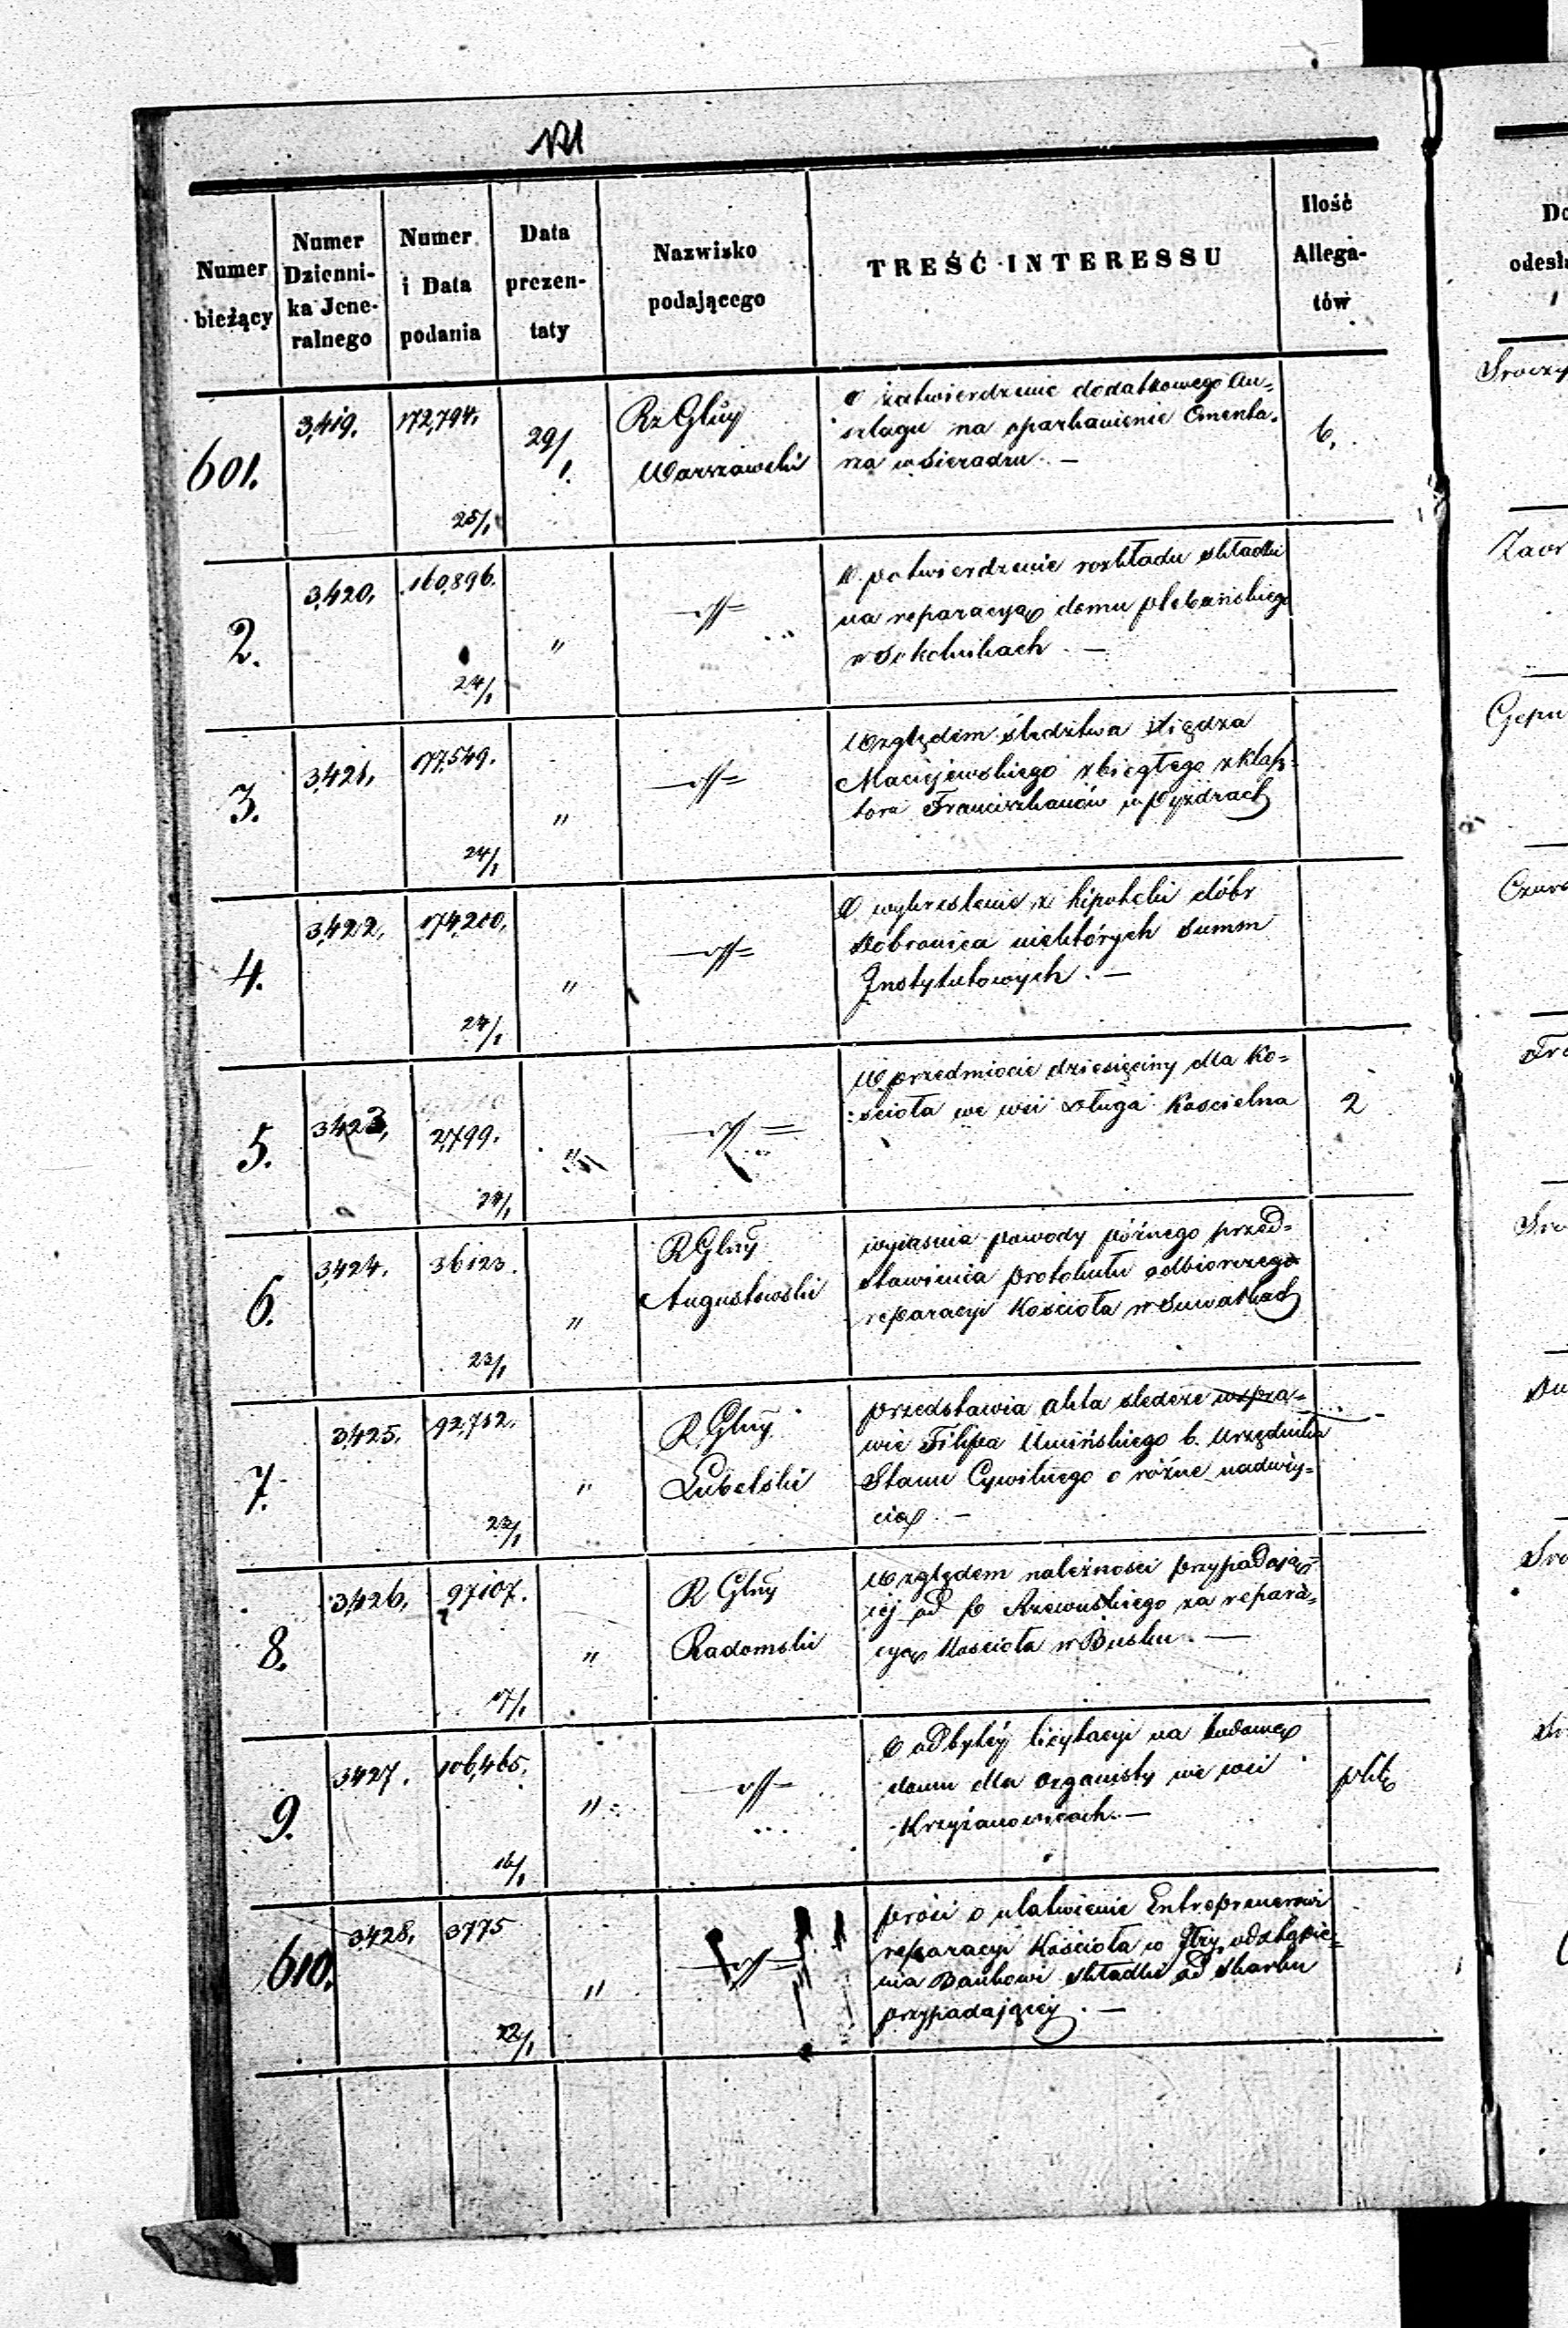 Numer bieżący
Numer Dzienni-
ka Jene-
ralnego
Numer i Data podania
Data prezen-
taty
Nazwisko podającego
TREŚĆ INTERESSU
Ilość Allega-
tów
601. 3,419. 172,794. 25/1 29/1. Rz Głny Warszawski
O zatwierdzenie dodatkowego An-
szlagu na oparkanienie Cmenta-
rza w Sieradzu. — 6.
2. 3,420. 160,896. 24/1 "
O potwierdzenie rozkładu składki
na reparacyą domu plebańskiego
w Sokolnikach —
3. 3,421. 177,549. 24/1 "
Względem śledztwa Xiędza
Maciejewskiego zbiegłego z klasz-
tora Franciszkanów w Pyzdrach
4. 3,422. 174,200. 24/1 "
O wykreslenie z hipoteki dóbr
Dobronica niektórych Summ
Instytutowych. —
5. 3423, 2,799. 24/1 "
W przedmiocie dziesięciny dla Ko-
:ścioła we wsi Długa Koscielna 2
6. 3,424. 36123. 23/1 " R Głny Augustowski
wyiasnia powody późnego przed-
stawienia protokułu odbiorczego
reparacyi Kościoła w Suwałkach
7. 3,425. 92,712. 23/1 " R. Głny Lubelski
przedstawia akta sledcze w spra-
wie Filipa Umińskiego b. Urzędnika
Stanu Cywilnego o różne naduży-
cia. —
8. 3,426. 97107. 17/1 " R Głny Radomski
Względem należnosci przypadają-
cej od Rzewuskiego za repara-
cyą Kościoła w Busku. —
9. 3427. 106,465. 16/1 "
O odbytéj licytacyi na budowę
domu dla organisty we wsi
Krzyżanowicach. —
610. 3428. 3775 22/1 "
prosi o ułatwienie Entreprenerowi
reparacyi Kościoła w odstąpie-
nia Bankowi składki od Skarbu
przypadającéj. —
Do
odesł